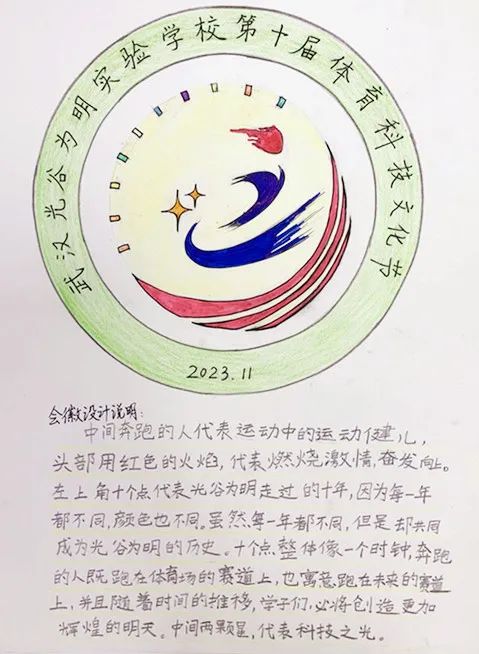 武汉光谷为明实验学校第十届体育科技文化节
2023.11
会徽设计说明:
中间奔跑的人代表运动中的运动健儿,
头部用红色的火焰,代表燃烧激情,奋发向上。
左上角十个点代表光谷为明走过的十年,因为每一年
都不同,颜色也不同。虽然每一年都不同,但是却共同
成为光谷为明的历史。十个点整体像一个时钟,奔跑
的人既跑在体育场的赛道上,也寓意跑在未来的赛道
上,并且随着时间的推移,学子们,必将创造更加
辉煌的明天。中间两颗星,代表科技之光。